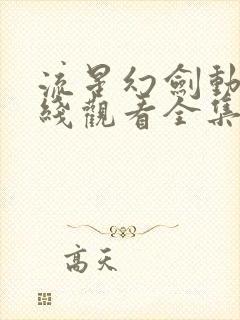 流星幻劍動
綫觀看全集
高天